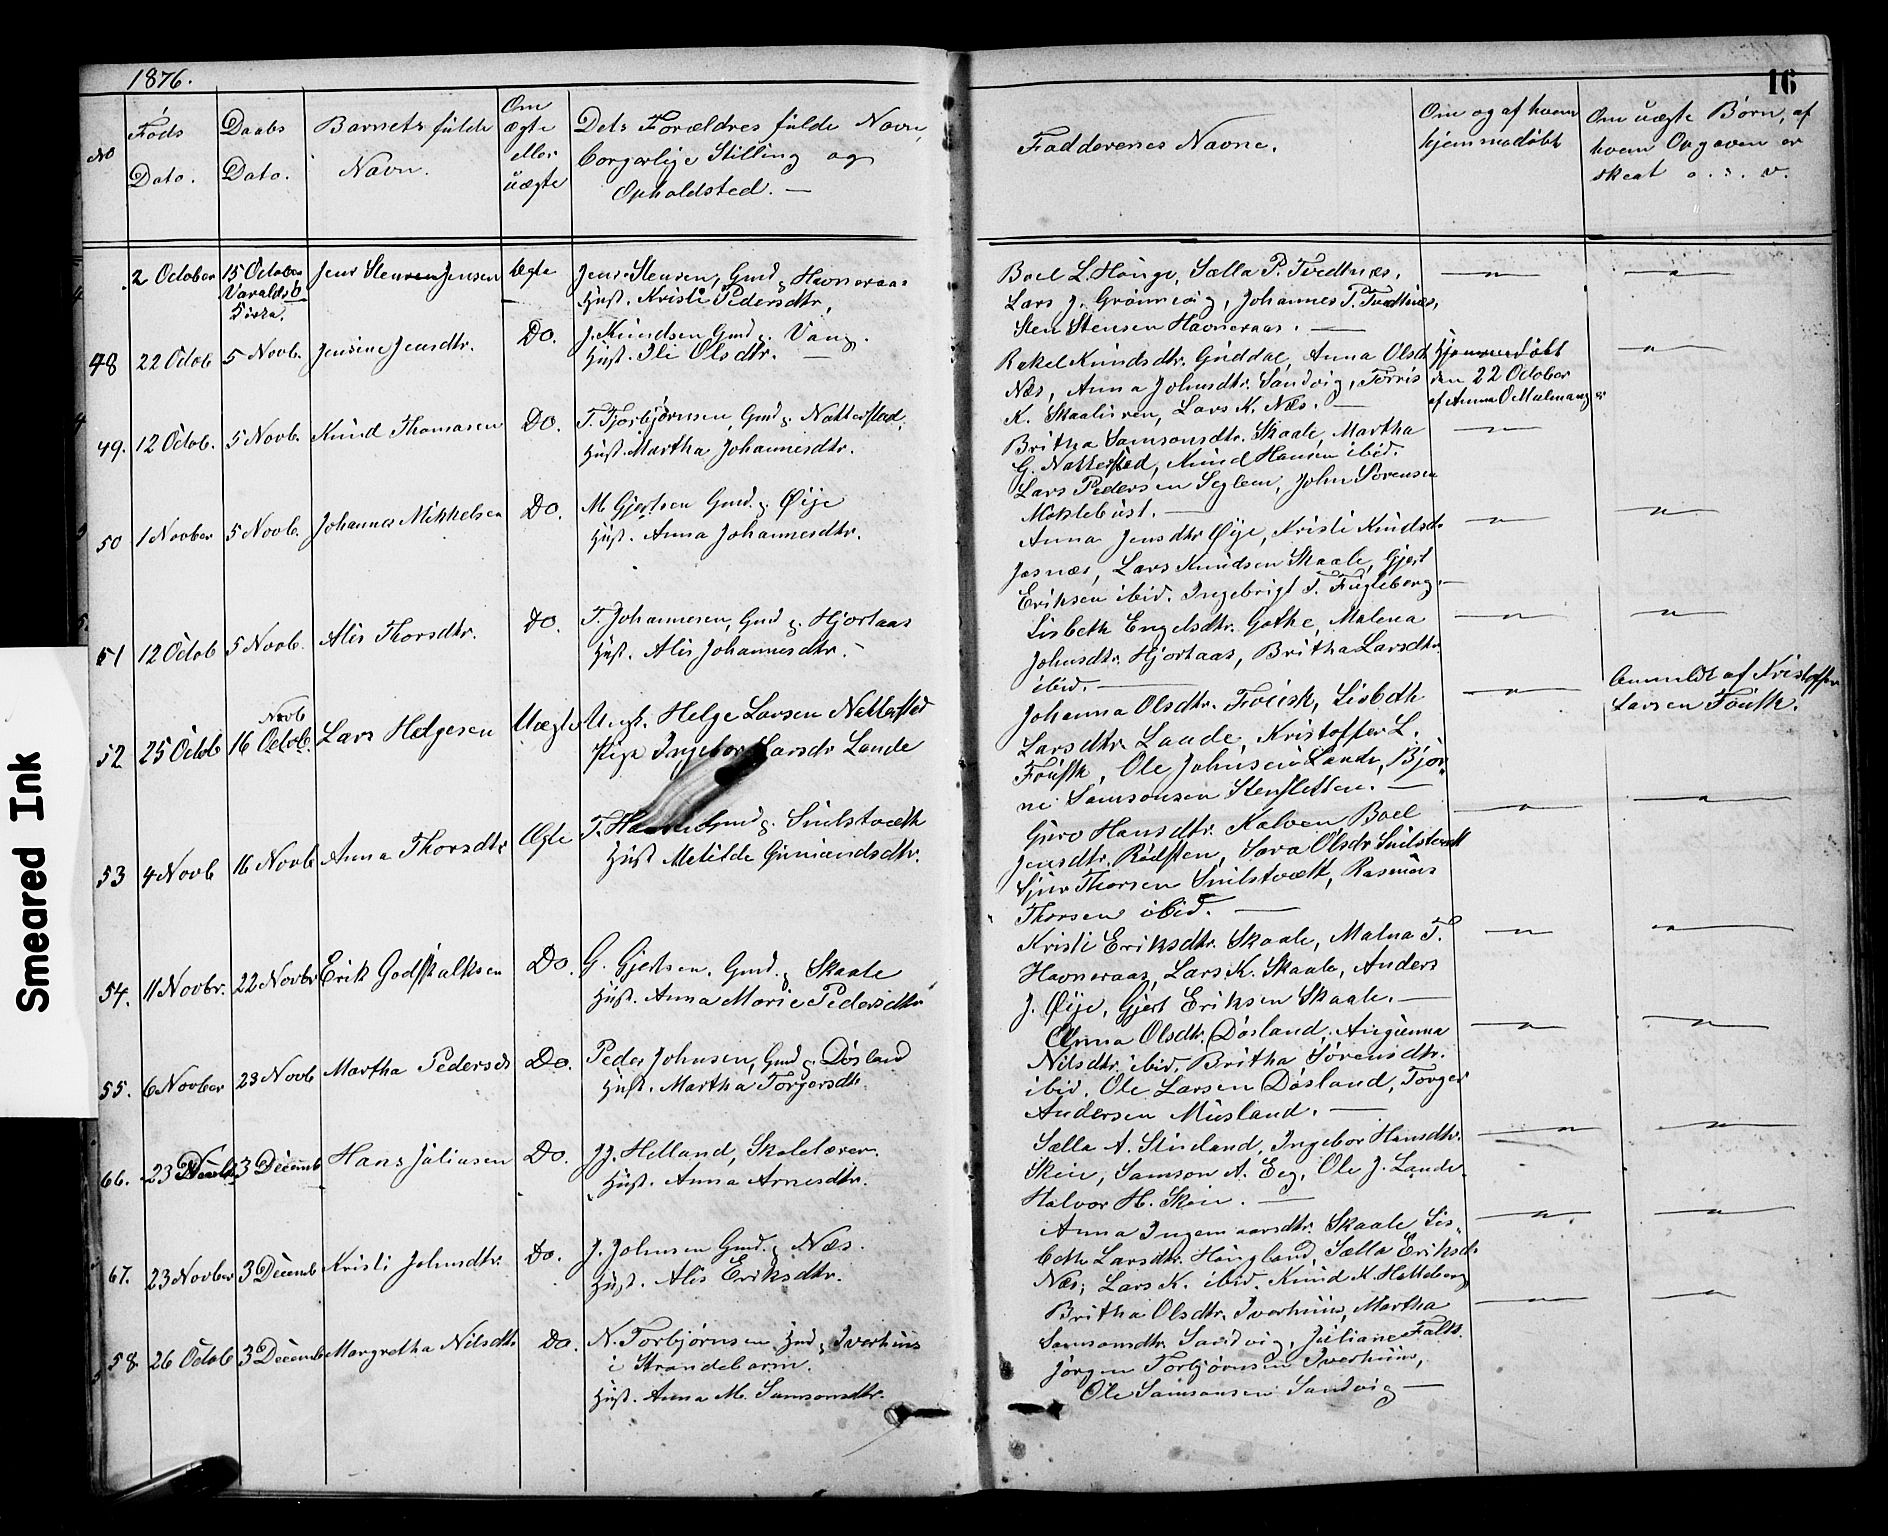 1876.
16
No
Føds Dato.
Daabs Dato.
Barnets fulde Navn.
Om ægte eller uægte
Dets Forældres fulde Navn,
borgerlige Stilling og
Opholdsted. —
Faddernes Navne.
Om og af hvem
hjemmedøbt
Om uægte Børn, af
hvem Opgaven er
skeat o. s. v.
2 October 15 October Varalds Jens Stensen Jensen Ægte Jens Stensen, Gmd. Havneraas
Hust. Kristi Pedersdtr,
Boel L. Houge, Sælla P. Tvedtnæs,
Lars J. Grønnevig, Johannes T. Tvedtnæs,
Sten Stensen Havneraas. —
48 22 Octob 5 Novb. Jensine Jensdtr. Do. J. Knudsen Gmd. Vang.
Hust. Ili Olsdtr. —
Rakel Knudsdtr. Guddal, Anna Olsd.
Næs, Anna Johnsdtr. Sandvig, Torris
K. Skaaluren, Lars K. Næs. —
Hjemmedøbt
den 22 October
af Anna O Malmanger
49. 12 Octob. 5 Novb. Knud Thomasen Do. T. Torbjørnsen, Gmd. Nattersted.
Hust. Martha Johannesdtr.
Britha Samsonsdtr. Skaale, Martha
G. Nattersted, Knud Hansen ibid.
Lars Pedersen Seglem, John Sørensen
Møklebust. —
50 1 Novber 5 Novb. Johannes Mikkelsen Do. M Gjertsen Gmd. Øije
Hust. Anna Johannesdtr.
Anna Jensdtr Øije, Kristi Knudsd.
Josnæs, Lars Knudsen Skaale, Gjert
Eriksen ibid. Ingebrigt T. Fugleberg. —
51 12 Octob 5 Novb. Alis Thorsdtr. Do. T. Johannesen, Gmd. Hjortaas
Hust. Alis Johannesdtr. —
Lisbeth Engelsdtr. Gothe, Malena
Johnsdtr. Hjortaas, Britha Larsdtr
ibid. —
52 25 Octob 16 Octob. Novb Lars Helgesen Uægte Ungk. Helge Larsen Nattersted
Pige Ingebor Larsdr Lande
Johanna Olsdtr. Fousk, Lisbeth
Larsdtr Lande, Kristoffer L.
Fousk, Ole Johnsen Lande, Bjør-
ne Samsonsen Stensletten. —
Anmeldt af Kristoffer
Larsen Fousk.
53 4 Novb 16 Novb Anna Thorsdtr Ægte T. Gmd. Snilstveth
Hust Metilde Gunundsdtr.
Guro Hansdtr. Kalven Boel
Jensdtr. Rødsten, Sara Olsdr Snilstvedt
Sjur Thorsen Snilstveth, Rasmus
Thorsen ibid. —
54. 11 Novbr. 22 Novbr Erik Godskalksen Do. G. Gjertsen, Gmd. Skaale
Hust. Anna Marie Pedersdtr
Kristi Eriksdtr. Skaale, Malna T.
Havneraas, Lars K. Skaale, Anders
J. Øije, Gjert Eriksen Skaale. —
55. 6 Novber 23 Novb Martha Pedersd Do. Peder Johnsen, Gmd. Døsland
Hust. Martha Torgersdt.
Anna Olsdtr. Døsland, Angunna
Nilsdtr. ibid. Britha Sørensdtr.
ibid. Ole Larsen Døsland, Torger
Andersen Musland. —
66. 23 3 Decemb Hans Juliusen Do. J. Helland, Skolelærer.
Hust. Anna Arnesdtr.
Sælla A. Stusland, Ingebor Hansdtr.
Skeie, Samson A. Eeg, Ole J. Lande.
Halvor H. Skeie. —
67. 23 Novber 3 Decemb Kristi Johnsdtr. Do. J. Johnsen Gmd. Næs.
Hust. Alis Eriksdtr.
Anna Ingemaarsdtr. Skaale, Lis-
beth Larsdtr. Hougland, Sælla Eriksd.
Næs, Lars K. ibid. Knud K. Hatteberg
58. 26 Octob 3 Decemb Margretha Nilsdtr Do. N. Torbjørnsen Gmd. Iverhuus
i Strandebarm.
Hust. Anna M. Samsonsdtr.
Britha Olsdtr. Iverhuus, Martha
Samsonsdtr. Sandvig, Juliane Falk.
Jørgen Torbjørnsen Iverhuus,
Ole Samsonsen Sandvig —
Smeared Ink